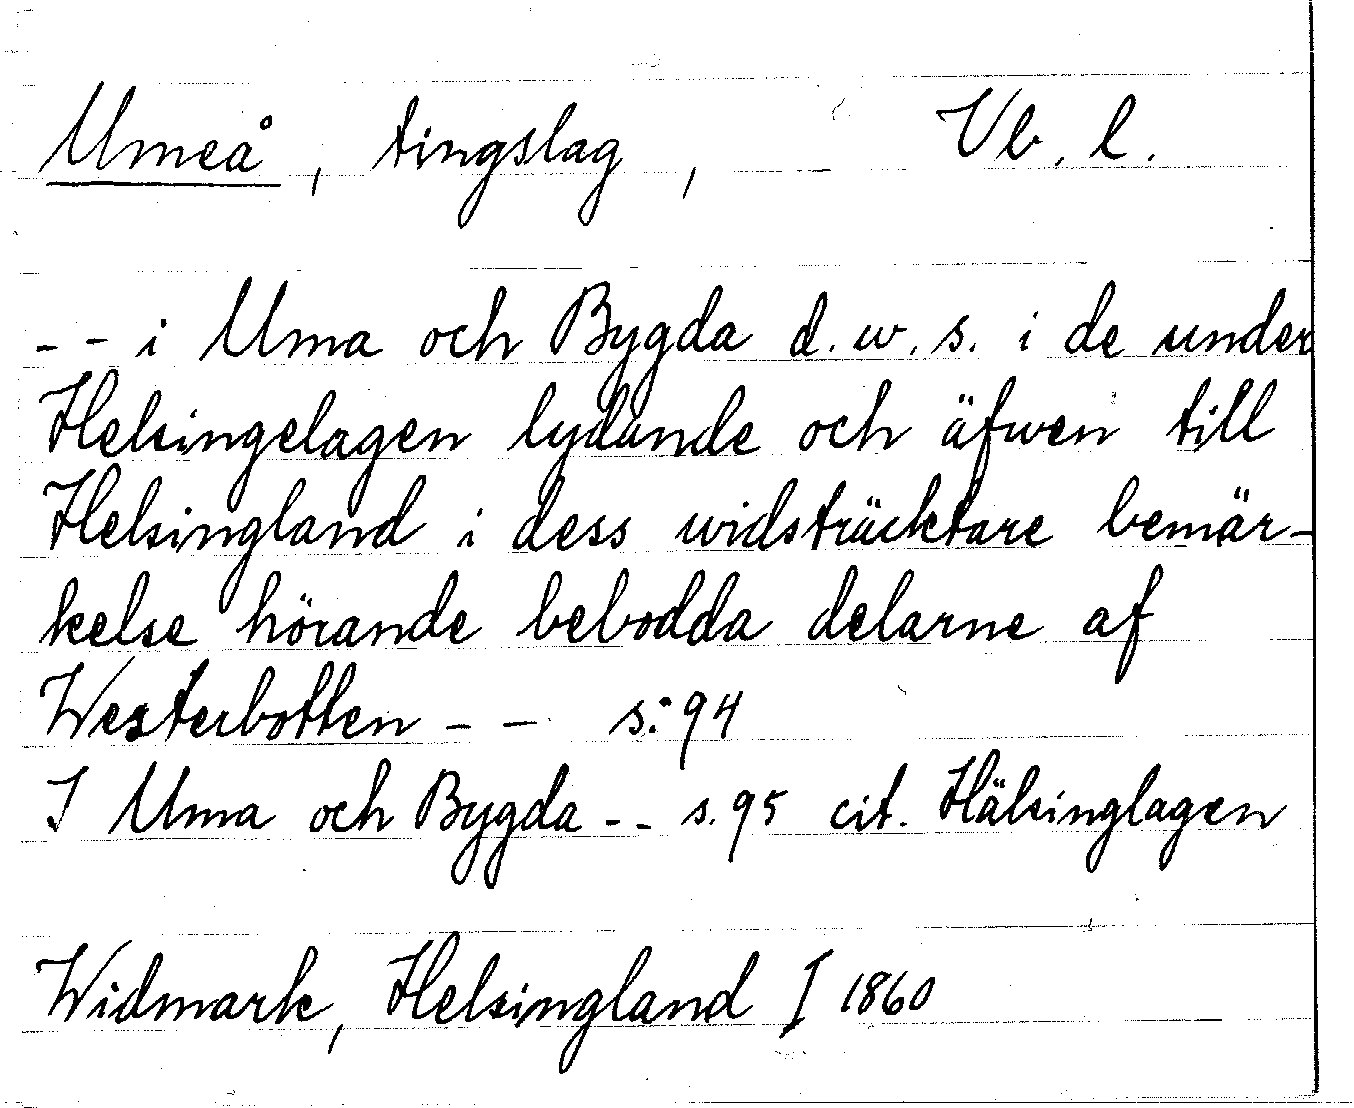 Umeå, tingslag, Vb. l.
-- i Uma och Bygda d.w.s. i de under
Helsingelagen lydande och äfwen till
Helsingland i dess widsträcktare bemär-
kelse hörande bebodda delarne af
Westerbotten -- s: 94
I Uma och Bygda -- s. 95 cit. Hälsinglagen
Widmark, Helsingland I 1860